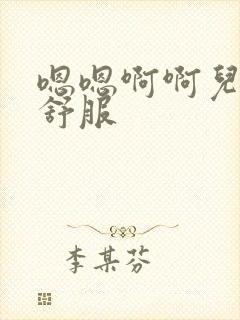 嗯嗯啊啊兒
舒服
李某芬